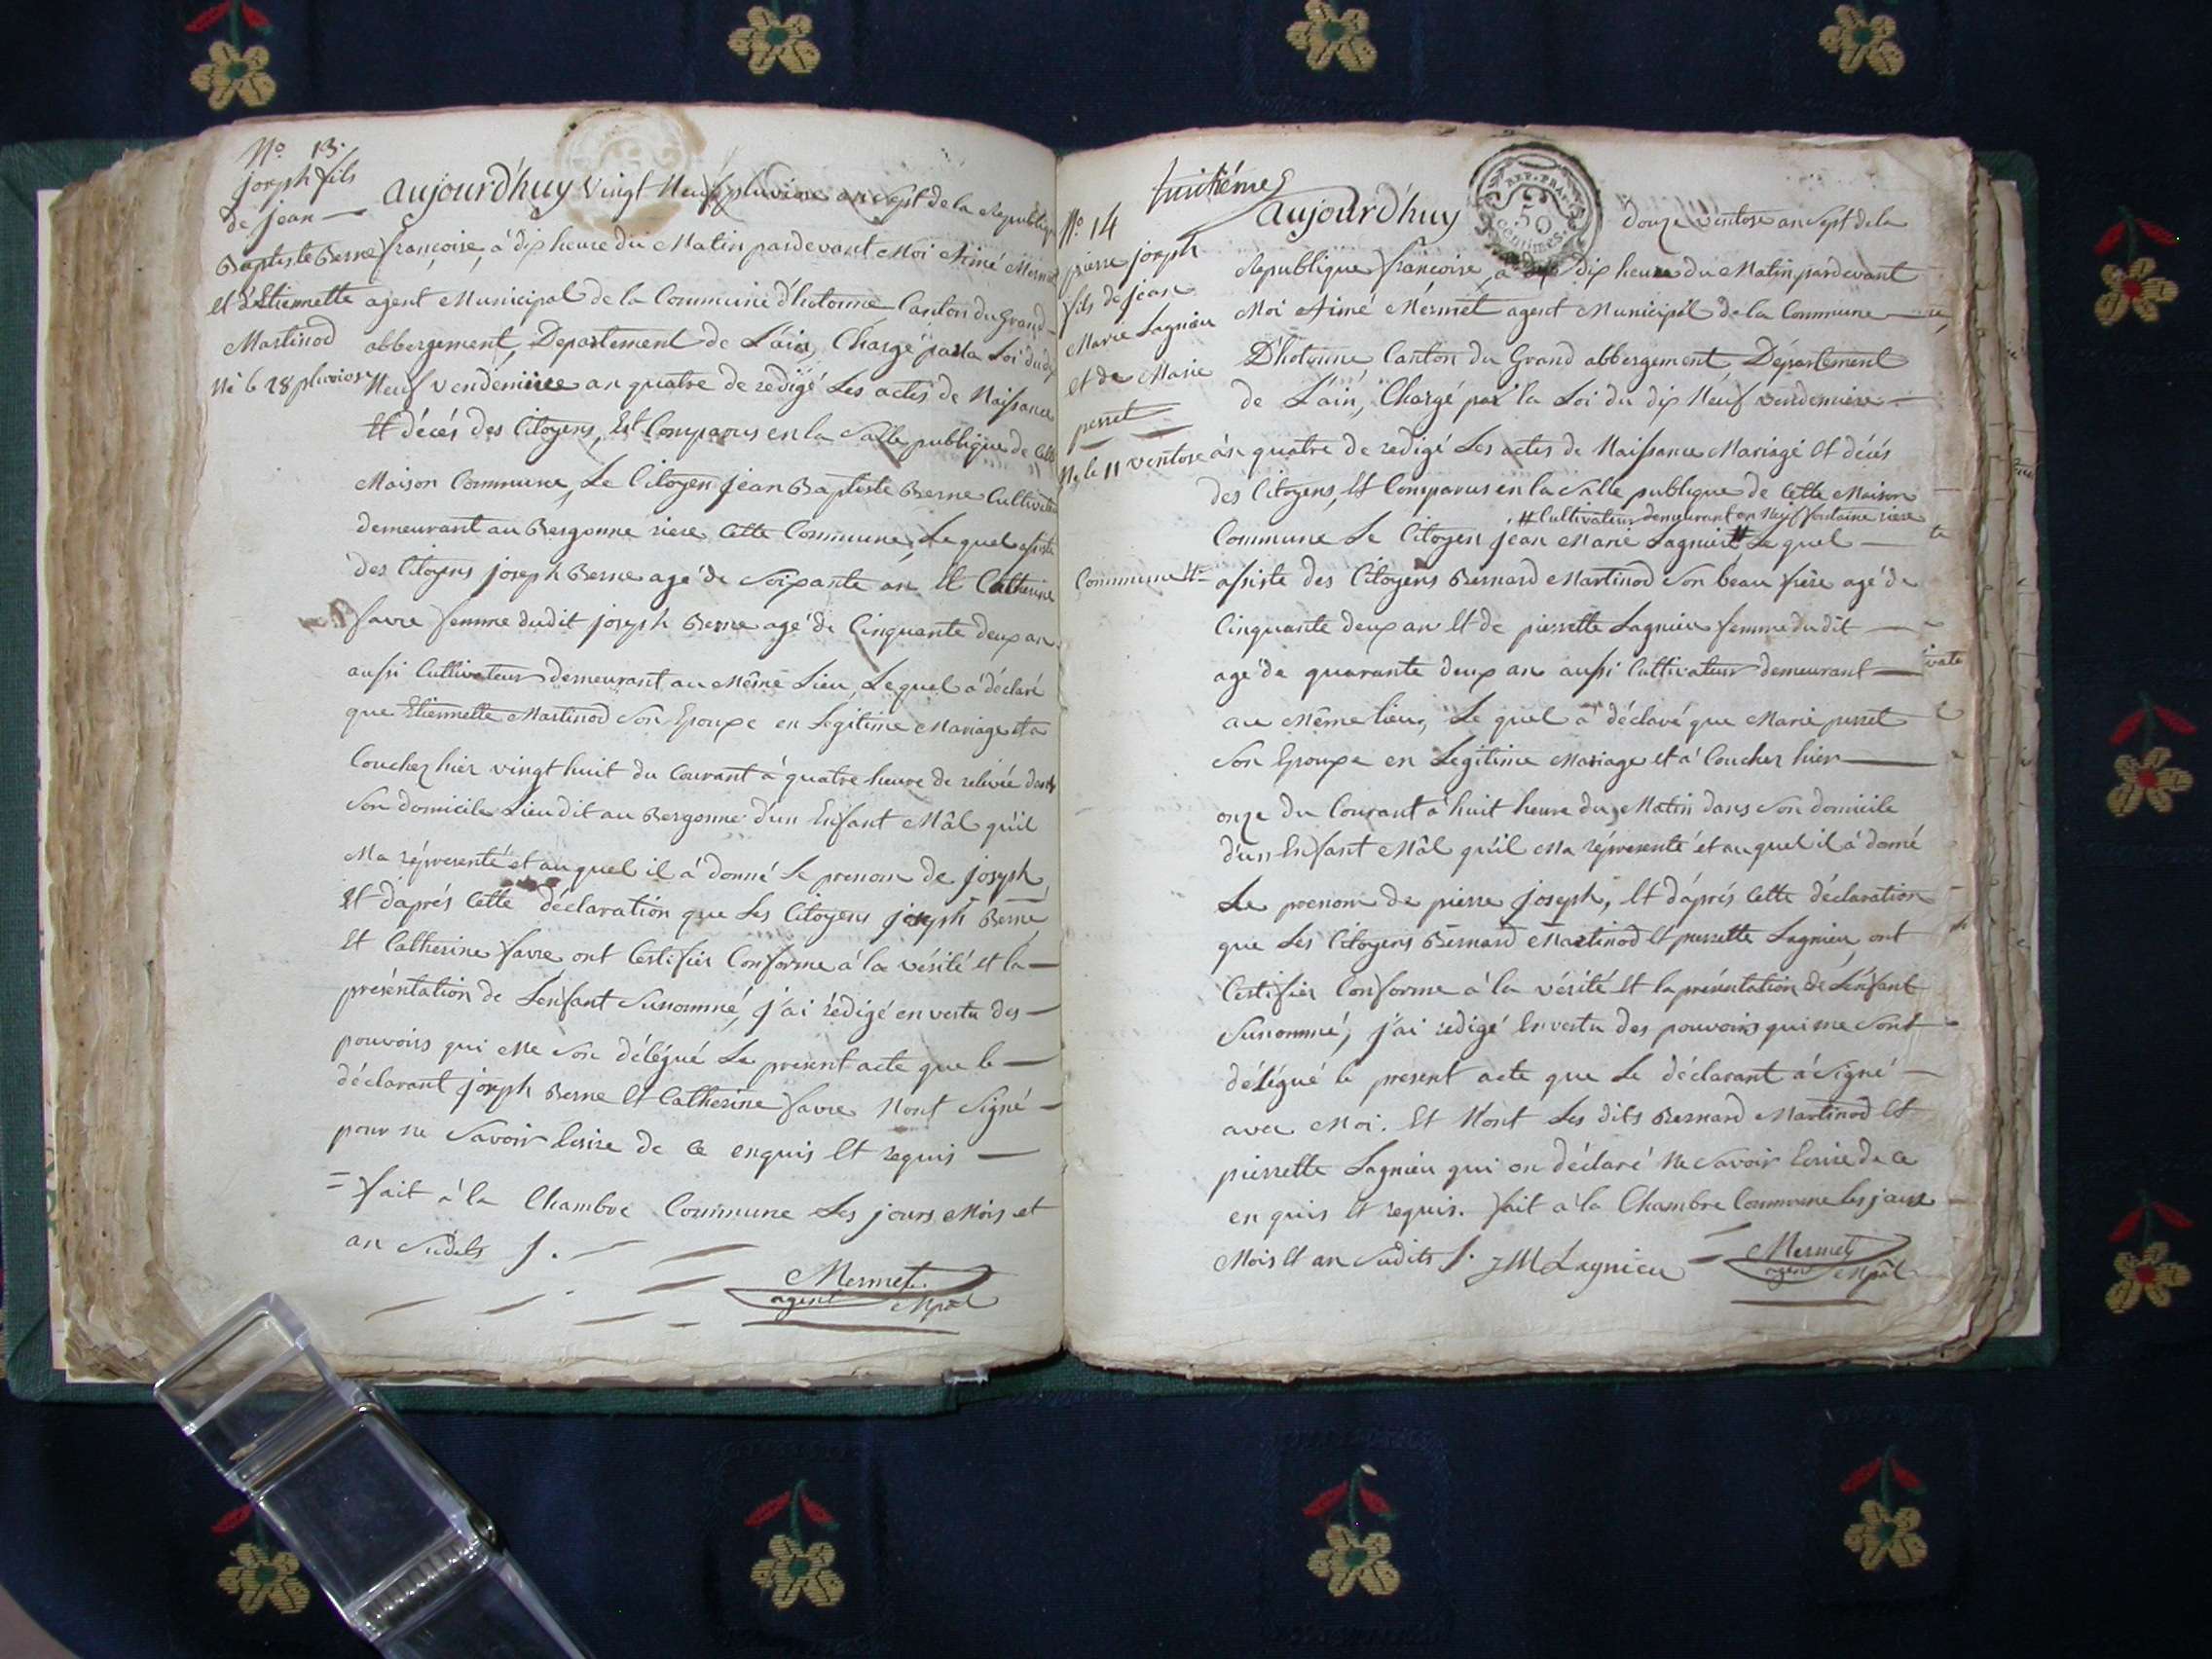 No 13.
joseph fils
de jean
Baptiste Berne
et d'Etiennette
Martinod
Né le 28 pluviose
aujourd'huy vingt Neuf pluviose an sept de la Republique
françoise, à dix heure du Matin pardevant Moi Aimé Mermet
agent Municipal de la Commune d'hotonne Canton du Grand
abbergement, Departement de L'ain, Chargé par la Loi du dix
Neuf vendemiere an quatre de redigé Les actes de Naissance
Et décés des Citoyens, Est Comparus en la Salle publique de Cette
Maison Commune, Le Citoyen jean Baptiste Berne Cultivateur
demeurant au Bergonne riere Cette Commune, Le quel assiste
des Citoyens joseph Berne agé de Soixante an Et Catherine
favre femme dudit joseph Berne agé de Cinquante deux an
aussi Cultivateur demeurant au Même Lieu, Le quel a déclaré
que Etiennette Martinod Son Epouxe en Legitime Mariage et a
Couchez hier vingt huit du Courant à quatre heure de relevée dans
Son domicile Lieu dit au Bergonne d'un Enfant Mâl qu'il
Ma répresenté et au quel il à donné Le prenom de joseph
Et d'aprés Cette déclaration que Les Citoyens joseph Berne
Et Catherine favre ont Certifier Conforme à la vérité et la
présentation de L'enfant Susnommé, j'ai rédigé en vertu des
pouvoirs qui Me Son délégué Le present acte que le
déclarant joseph Berne Et Catherine favre Nont Signé
pour ne Savoir Ecrire de Ce enquis Et requis
= fait à la Chambre Commune Les jours Mois et
an Sudits /.
Mermet
agent Mpal
huitiéme
No 14
pierre joseph
fils de jean
Marie Lagnieu
et de Marie
perret
Né le 11 ventose
REP. FRA.
50
centimes.
aujourd'huy douze ventose an sept de la
Republique françoise, a dix heure du Matin pardevant
Moi Aimé Mermet agent Municipal de la Commune
D'hotonne, Canton du Grand abbergement, Département
de L'ain, Chargé par la Loi du dix Neuf vendemiere
an quatre de redigé Les actes de Naissance Mariage Et décés
des Citoyens, Et Comparus en la Salle publique de Cette Maison
# Cultivateur demeurant en Neuf fontaine riere
Commune Le Citoyen jean Marie Lagnieu # Le quel
Commune #
assiste des Citoyens Bernard Martinod Son beau frére agé de
Cinquante deux an Et de pierrette Lagnieu femme du dit
agé de quarante deux an aussi Cultivateur demeurant
au Même lieu, Le quel a déclaré que Marie perret
Son Epouxe en Legitime Mariage et à Coucher hier
onze du Courant à huit heure du Matin dans Son domicile
d'un Enfant Mâl qu'il Ma répresenté et au quel il à donné
Le prenom de pierre joseph, Et d'aprés Cette déclaration
que Les Citoyens Bernard Martinod Et pierrette Lagnieu, ont
Certifier Conforme à la vérité Et la présentation de L'enfant
Susnommé, j'ai redigé En vertu des pouvoirs qui me Sont
délégué le present acte que Le déclarant a Signé
avec Moi. Et N'ont Les dits Bernard Martinod Et
pierrette Lagnieu qui on déclaré Ne Savoir Ecrire de Ce
en quis Et requis. fait à la Chambre Commune les jour
Mois Et an Sudits /. JM Lagnieu
Mermet
agent Mpâl